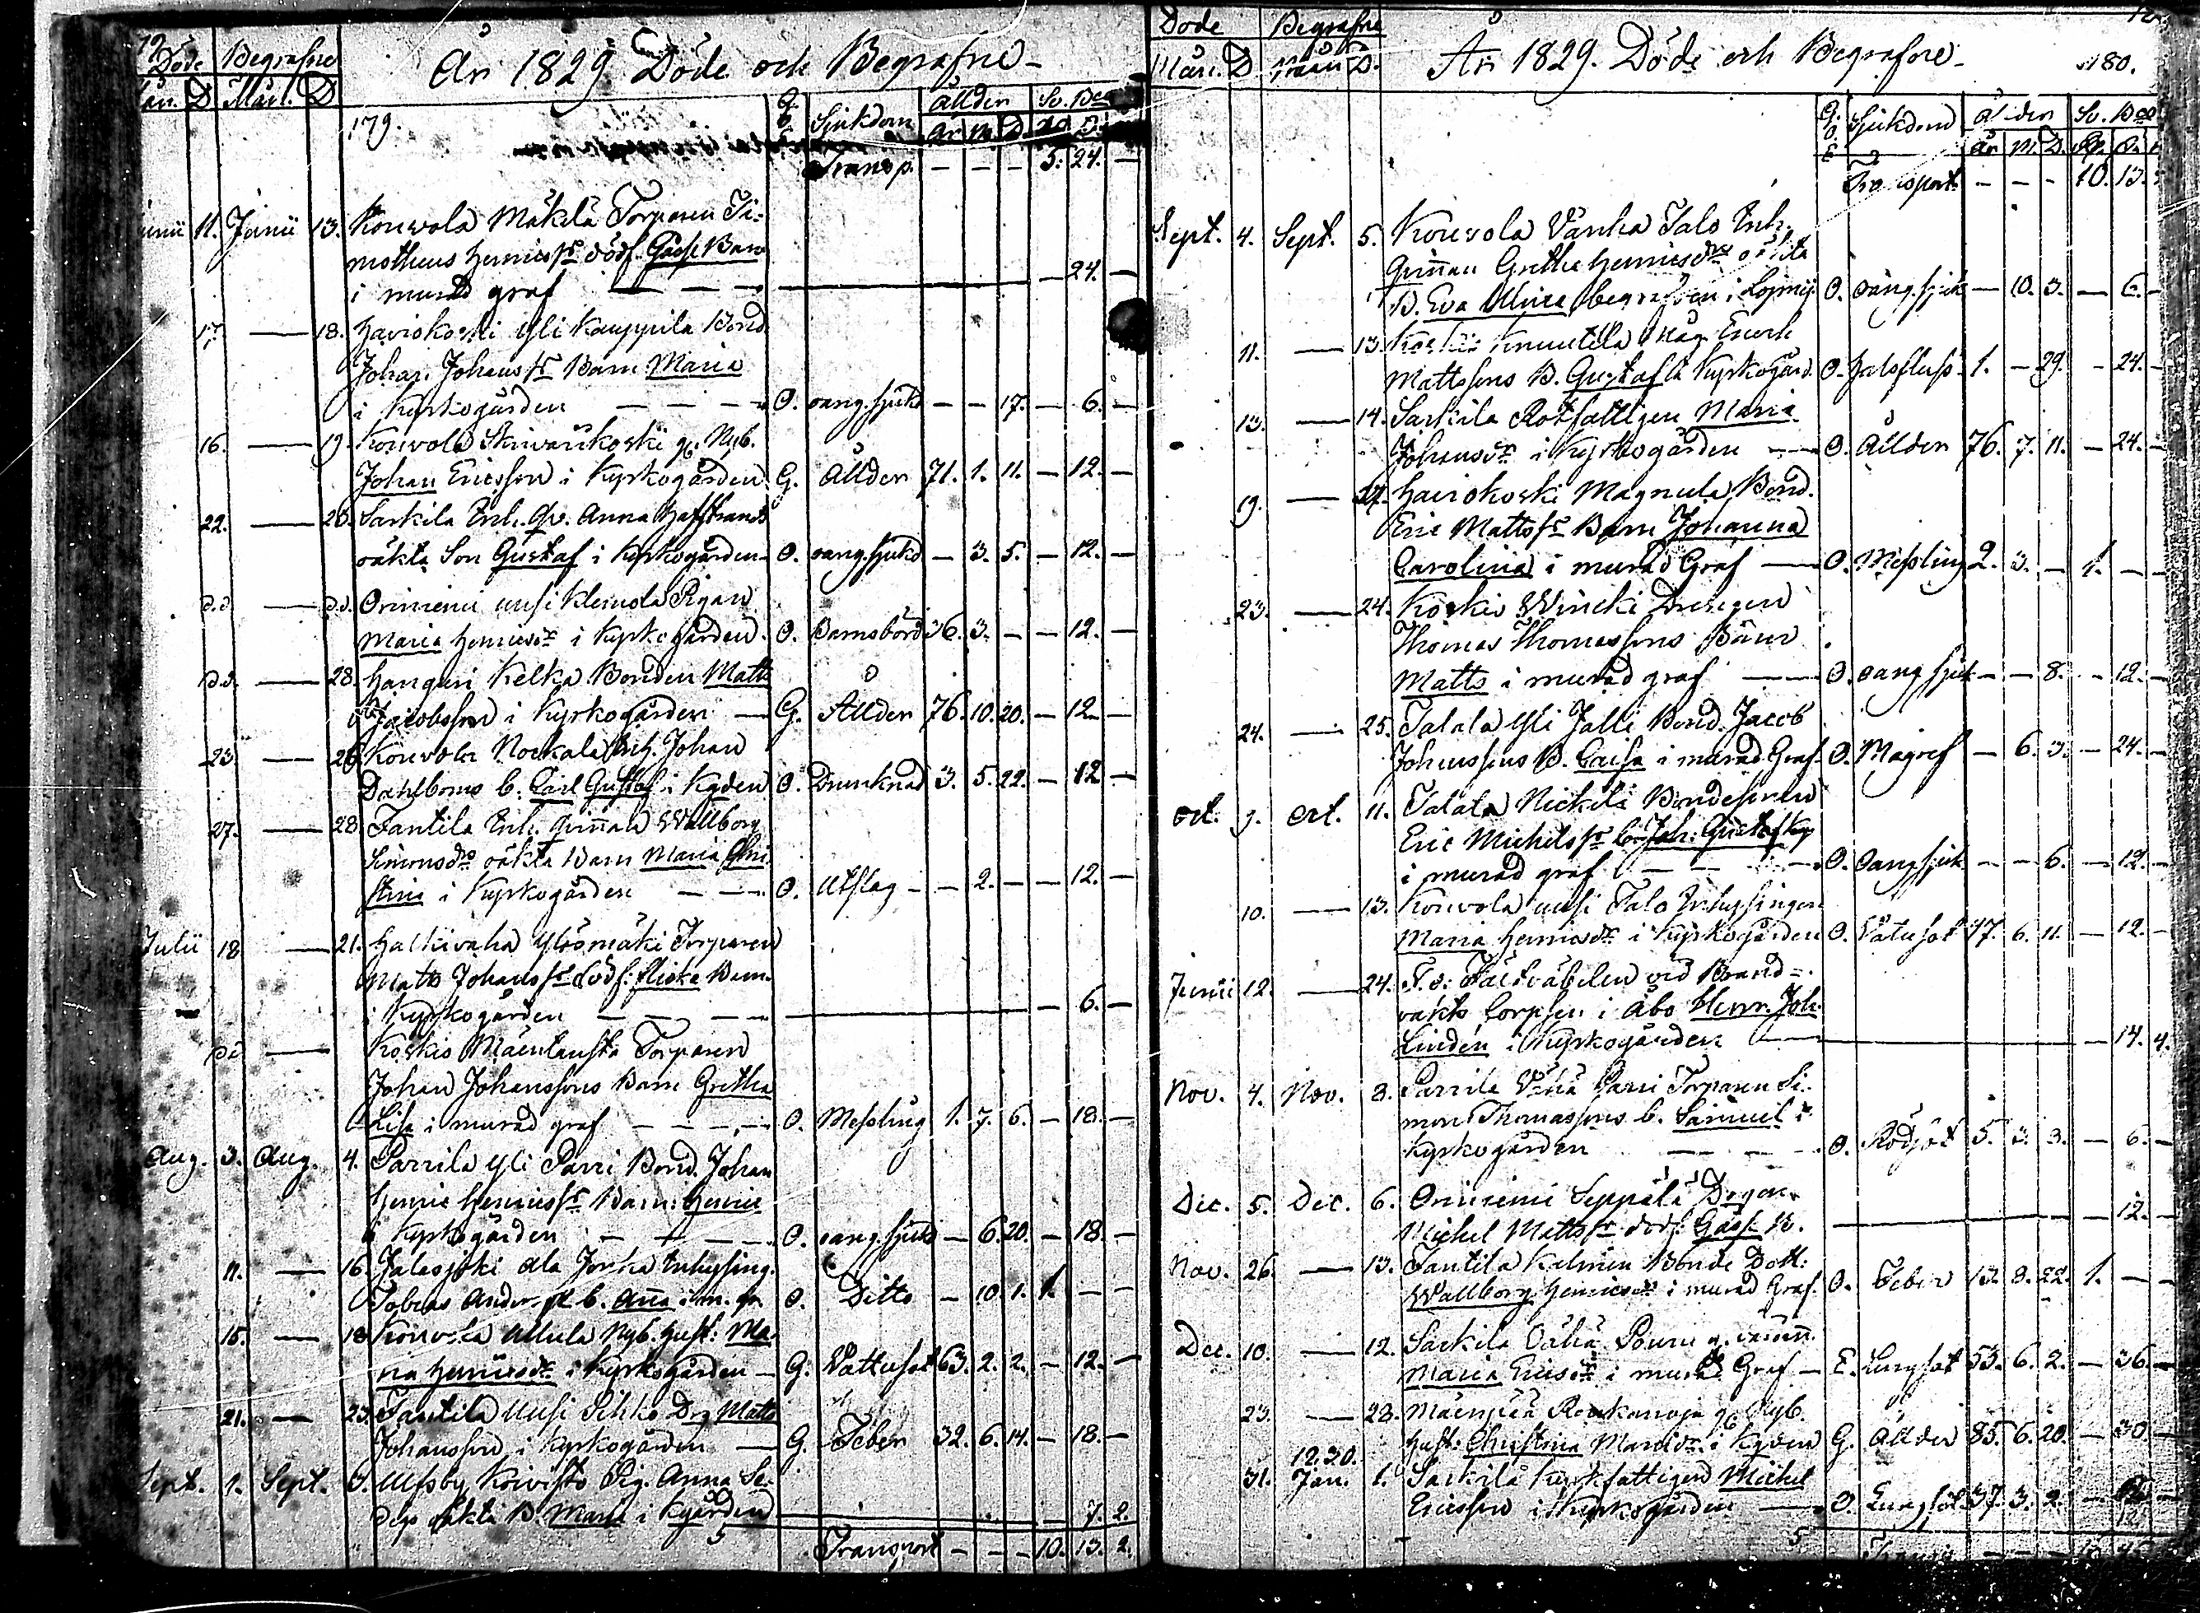 Döde Begrafne
År 1829 Döde och Begrafne
Mån. D Mån. D
179. G. O. E. Sjukdom Ållder Sv. Beg
År M. D.
Transp. — — — 5. 24. —
Junii 11. Junii 13. Kouvola Mäkilä Torparen Ti=
motheus Henricss: dödf. Gåsse Barn
i murad graf — — — 24. —
17. — 18. Haviokoski Yli Kauppila Bond.
Johan Johanss: Barn Maria
i Kyrkogården — — — O. oang. sjukd — — 17. — 6. —
16. — 19. Kouvola Skinnarikoski g. Nyb.
Johan Ericsson i Kyrkogården G. Ållder 71. 1. 11. — 12. —
22. — 28. Sarkila Inh. Qv. Anna
oäkta Son Gustaf i Kyrkogården O. oang. sjukd — 3. 5. — 12. —
d.d. — d.d. Orimemi uusi Klemola Pigan
Maria Henricsdr i Kyrkogården. O. Barnsbörd 36. 3. — — 12. —
d.d. — 28. Hanguri Kelka Bonden Matts
Jacobsson i Kyrkogården — G. Ållder 76. 10. 20. — 12. —
23 — 28 Kouvola Nockala Inh. Johan
Dahlboms b. Carl Gustaf i Kgden O. Drunknad 3. 5. 22. — 12 —
27. — 28 Fantila Inh. Qvinnan Wallborg
Simonsdrs oäkta Barn Maria Chri
stina i Kyrkogården — — — O. Utslag — — 2. — — 12. —
Julii 18 — 21. Hallivaha Ylösmäki Torparen
Matts Johanss: dödf: flicka Barn
i Kyrkogården — — — 6. —
dd — Koskis Mäenlausta Torparen
Johan Johanssons Barn Gretha
Lisa i murad graf — — — O. Messling 1. 7. 6. — 18. —
Aug. 3. Aug. 4. Parrila Yli Parri Bond. Johan
Henric Henricss: Barn: Henric
i Kyrkogården — — — O. oang. sjukd — 6. 20. — 18. —
11. — 16. Jalasjoki ala Jorha Inhysing.
Tobias Anderss: b. Anna i m. gr O. Ditto — 10. 1. 1. — —
15. — 18 Kouvola Ullula Nyb. Hust: Ma
ria Henricsdr i Kyrkogården — G. Vattusot 63. 2. 2. — 12. —
21. — 23. Fantila Uusi Sihko Dr. Matts
Johansson i Kyrkogården — G. Feber 32. 6. 14. — 18. —
Sept. 1. Sept. Ulfsby Koivisto Pig. Anna
oäkta B. Maria i Kgården — 7. 2.
5 Transport — — — 10. 13. 2.
Döde Begrafne
Mån. D. Mån D.
År 1829. Döde och Begrafne 180.
G. O. E. Sjukdom Ålder Sv. Beg
År M. D.
Transport — — — 10. 13.
Sept. 4. Sept. 5. Kouvola Vanha Talo Inh.
Qvinnan Gretha Henricsdrs oäkta
B. Eva Ulrica begrafven i Loimij. O. oang. sjuk — 10. 3. — 6. —
11. — 13. Koskis Knuutila Mag Erich
Mattssons B. Gustaf i Kyrkogård. O. Halsfluss 1. — 29. — 24. —
13. — 14. Sarkila Rotfattigen Maria
Johansdr i Kyrkogården — O. Ållder 76. 7. 11. — 24. —
19. — Haviokoski Magnula Bond.
Eric Mattss: Barn Johanna
Carolina i murad Graf — O. Messling 2. 3. — 1. — —
23. — 24. Koskis Wincki Drengen
Thomas Thomassons Barn
Matts i murad graf — O. oang sjuk — — 8. — 12. —
24. — 25. Talala Yli Jalli Bond. Jacob
Johanssons B. Caisa i murad Graf. O. Magref — 6. 3. — 24. —
Oct. 9. Oct. 11. Talala Nickilä Bondesonen
Eric Michelss: b. Joh: Gustaf
i murad graf — O. oang sjuk — — 6. — 12. —
10. — 13. Kouvola uusi Talo Inhysingen
Maria Henricsdr i Kyrkogården O. Vatusot 47. 6. 11. — 12. —
Junii 12. — 24. F.d. Faltväbelen vid Brand=
vakts Corpsen i Åbo Henr. Joh.
Lindén i Kyrkogården — 14. 4.
Nov. 4. Nov. 8. Parrila Vähä Parri Torparen Si=
mon Thomassons b. Samuel i
Kyrkogården — — — O. Rödsot 5. 3. 3. — 6. —
Dec. 5. Dec. 6. Orimemi Seppälä Dragon
Michel Mattss: dödf. Gåss. B. — 12. —
Nov. 26. — 13. Fantila Kalmin Bonde Dott:
Wallborg Henricsdr i murad Graf. O. Feber 13. 8. 22. 1. — —
Dec. 10. — 12. Sarkila Vähä Pouru g.
Maria Ericsdr i murad Graf — E. Lungsot 53. 6. 2. — 36. —
23. — 28. Mäenpää Nyb.
Hust: Christina i Kgden G. Ållder 85. 6. 20. — 30. —
1830.
31. Jan. 1. Sarkila Kyrkfattigen Michel
Ericsson i Kyrkogården — O. Lungsot 37. 3. 2. —
5